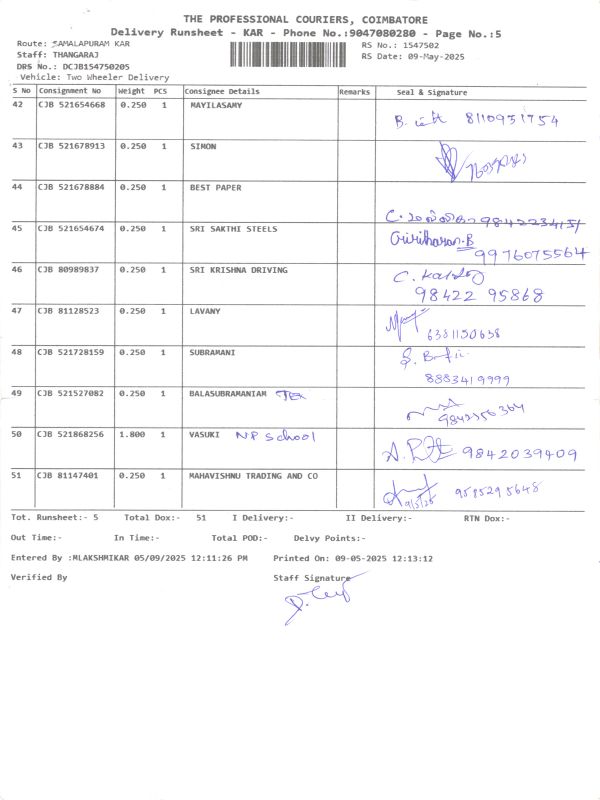 THE PROFESSIONAL COURIERS, COIMBATORE
Delivery Runsheet - KAR - Phone No.:9047080280 - Page No.:5
Route: SAMALAPURAM KAR
RS No.: 1547502
Staff: THANGARAJ
RS Date: 09-May-2025
DRS No.: DCJB154750205
Vehicle: Two Wheeler Delivery
S No Consignment No Weight PCS Consignee Details Remarks Seal & Signature
42 CJB 521654668 0.250 1 MAYILASAMY
8110951754
43 CJB 521678913 0.250 1 SIMON
44 CJB 521678884 0.250 1 BEST PAPER
C. 9842234151
45 CJB 521654674 0.250 1 SRI SAKTHI STEELS
Giritharan.B
9976075564
46 CJB 80989837 0.250 1 SRI KRISHNA DRIVING
98422 95868
47 CJB 81128523 0.250 1 LAVANY
6381150638
48 CJB 521728159 0.250 1 SUBRAMANI
8883419999
49 CJB 521527082 0.250 1 BALASUBRAMANIAM TEX
9842356364
50 CJB 521868256 1.800 1 VASUKI NP School
9842039409
51 CJB 81147401 0.250 1 MAHAVISHNU TRADING AND CO
9/5/25 9585295648
Tot. Runsheet:- 5 Total Dox:- 51 I Delivery:- II Delivery:- RTN Dox:-
Out Time:- In Time:- Total POD:- Delvy Points:-
Entered By :MLAKSHMIKAR 05/09/2025 12:11:26 PM Printed On: 09-05-2025 12:13:12
Verified By Staff Signature